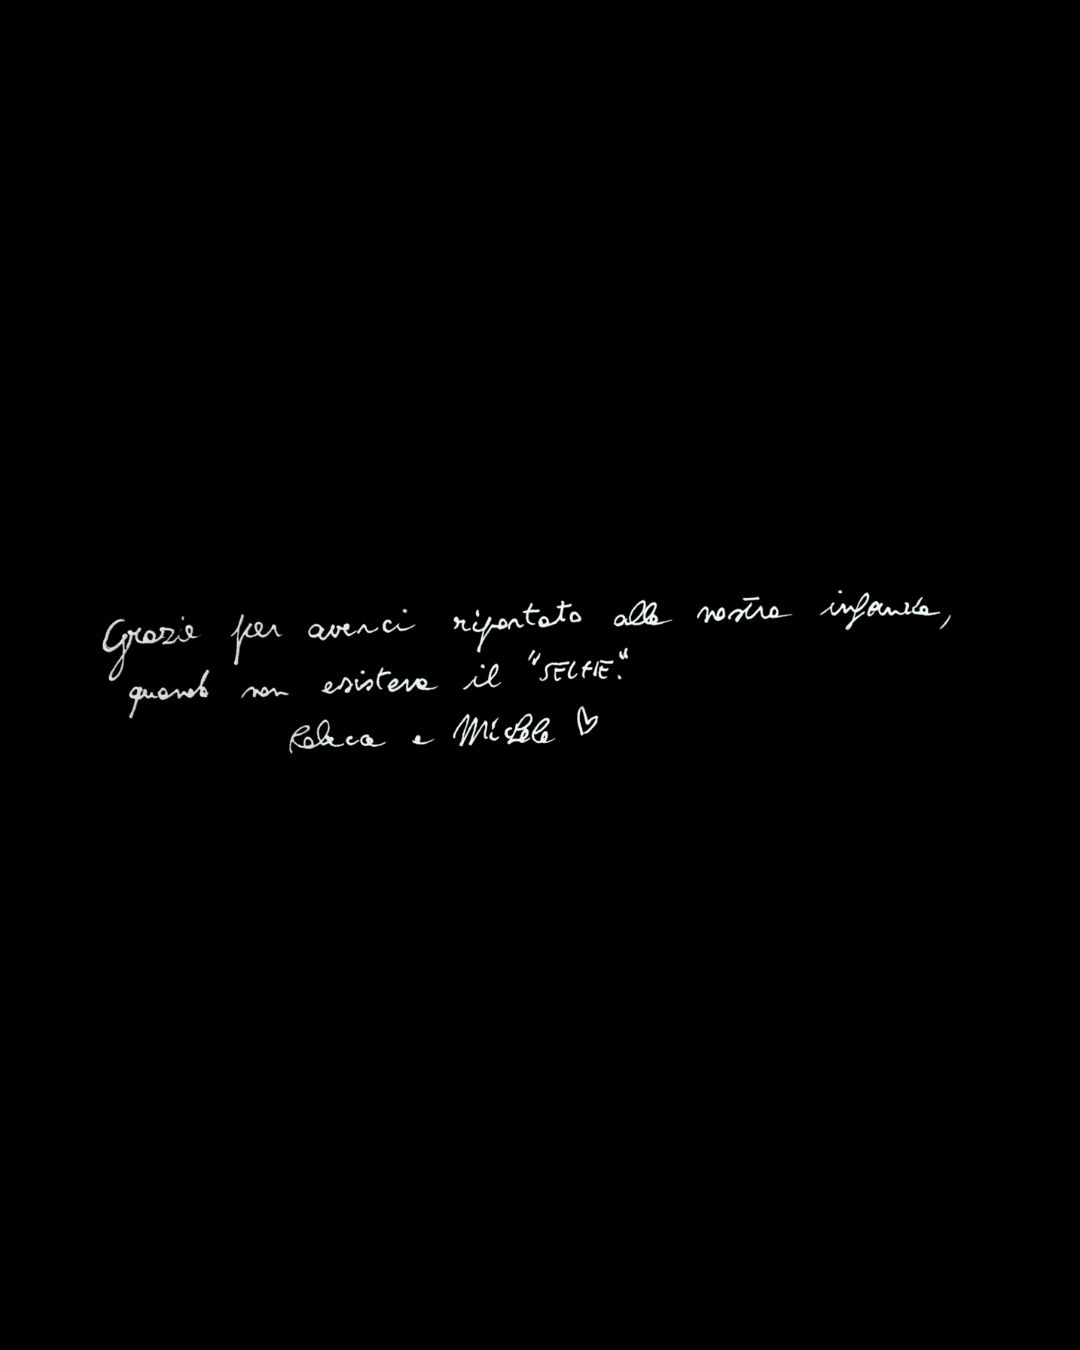 Grazie per averci riportato alla nostra infanzia,
quando non esisteva il "SELFIE".
e Michele ♡